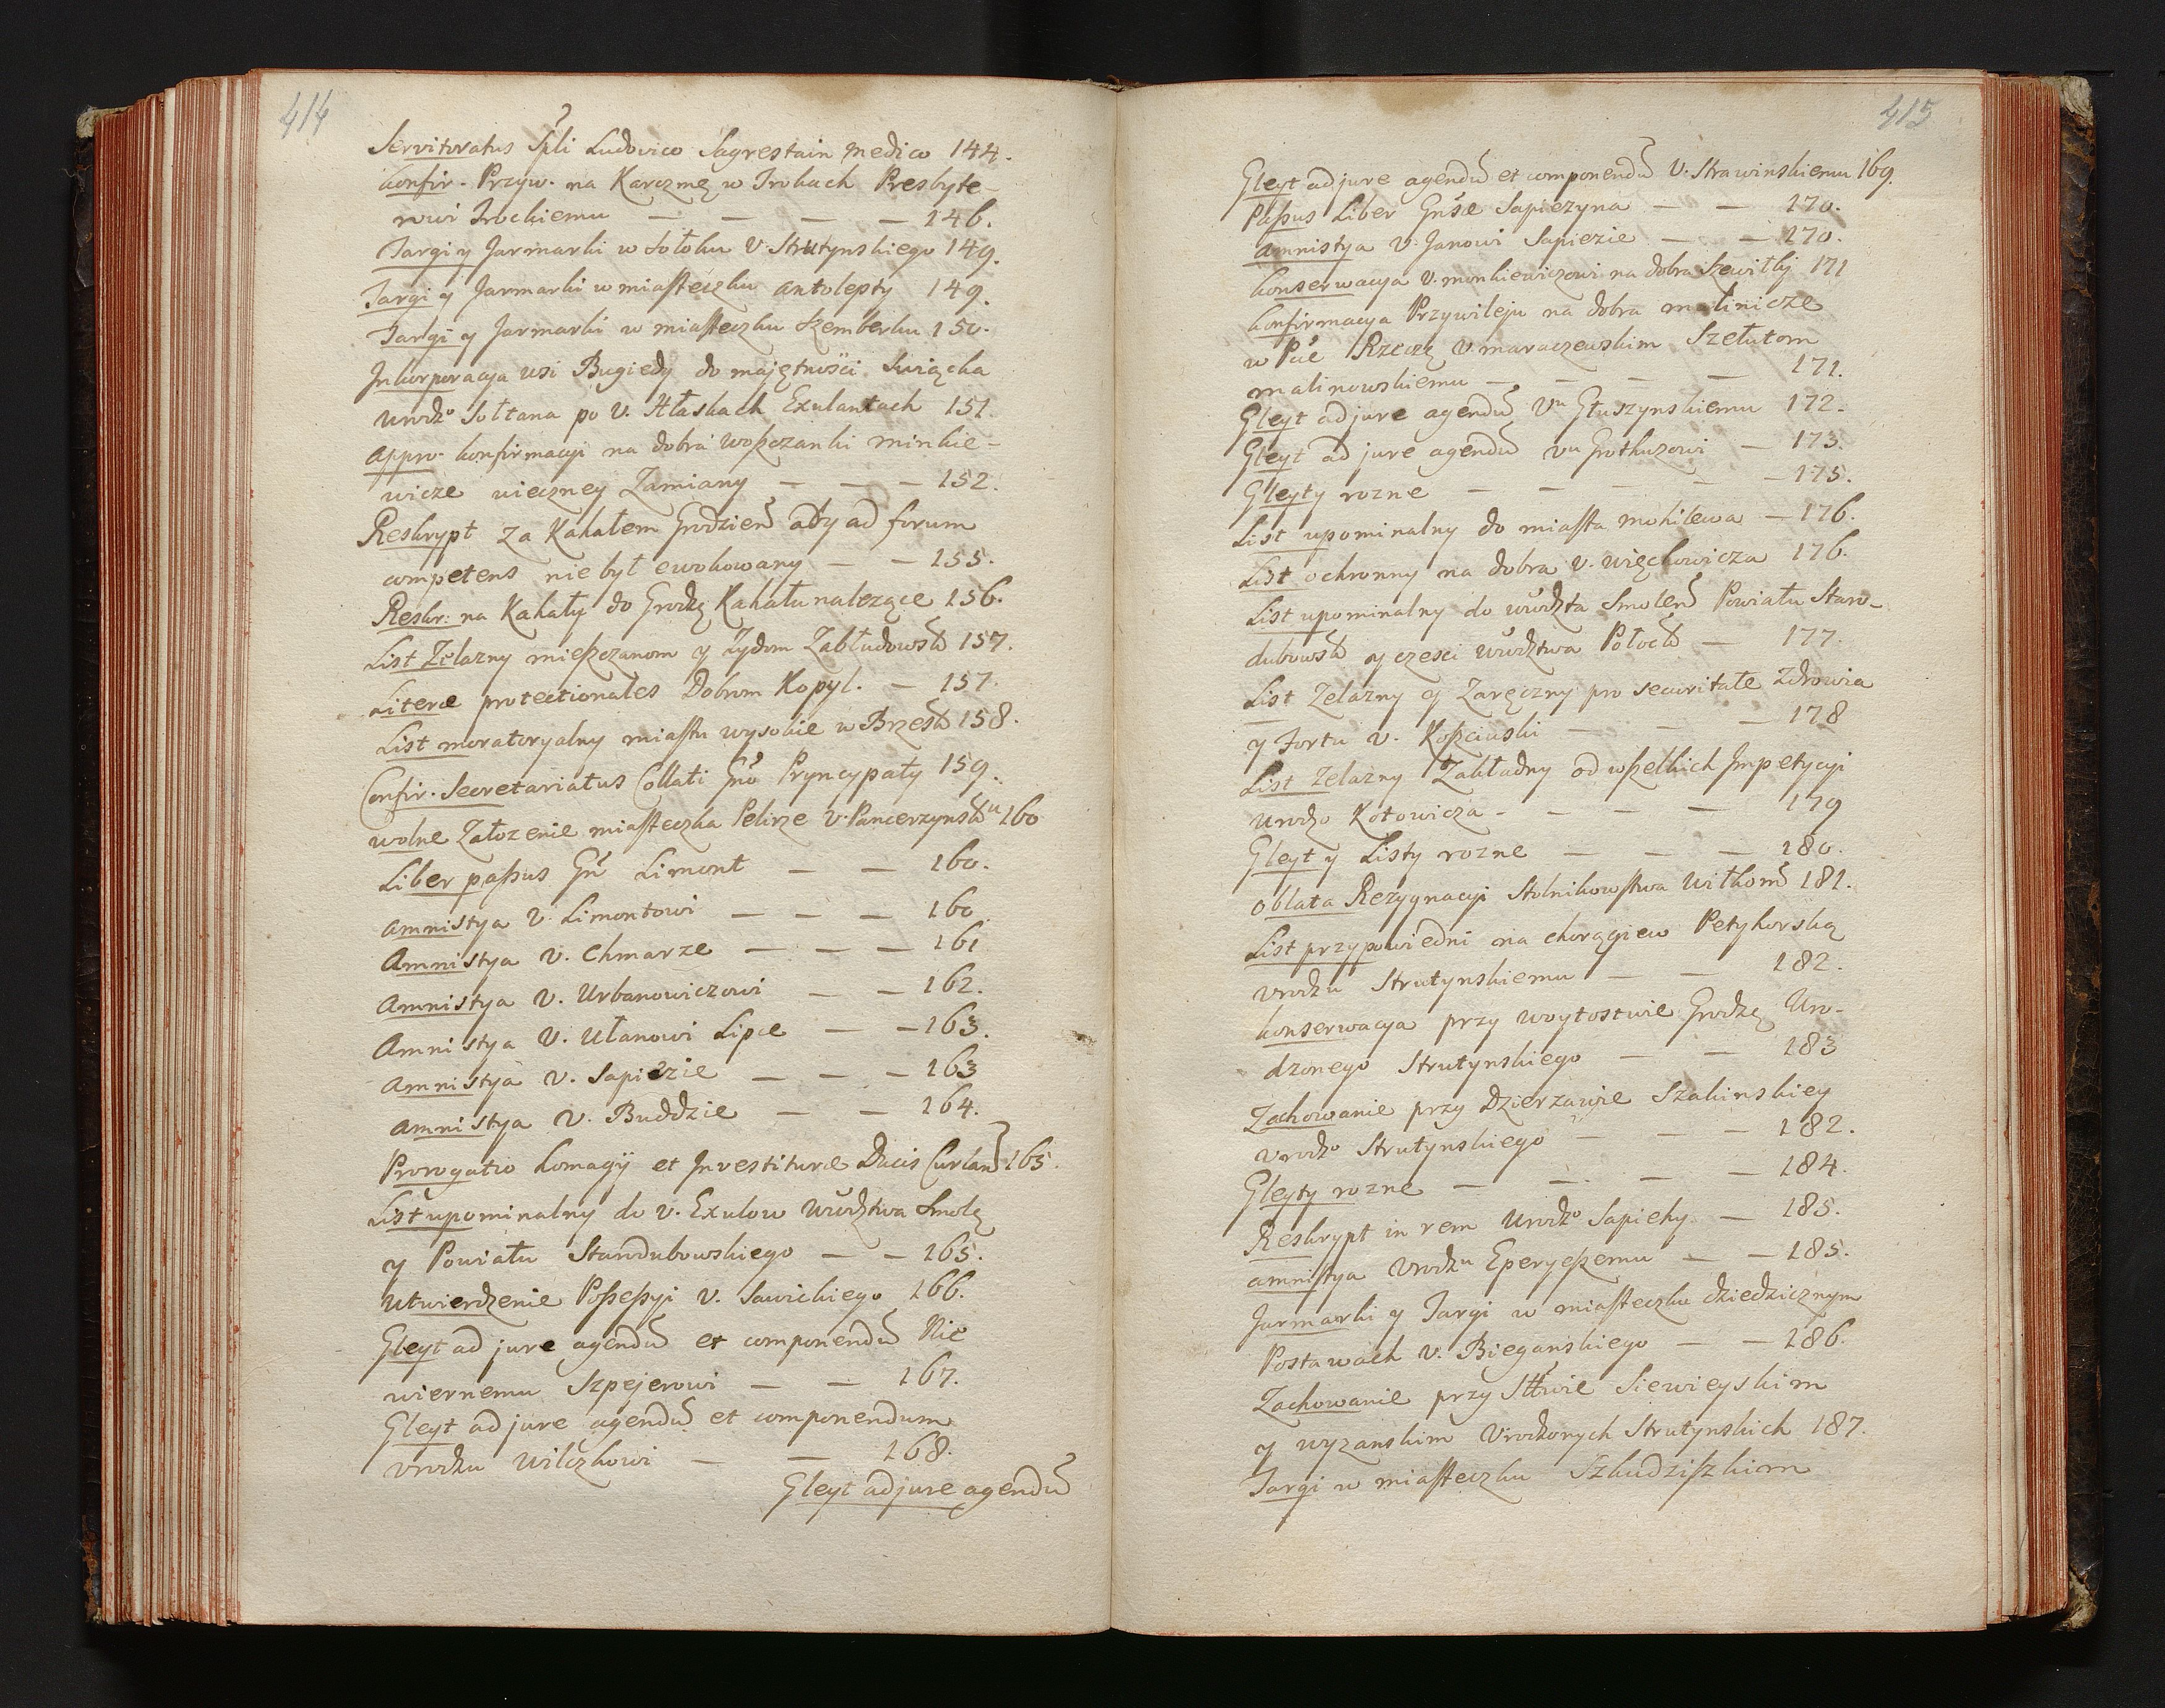 414
Servitoratus Spli Ludovico Sagrestain Medico 144.
Konfir. Przyw. na Karczmę w Trokach Presbyte-
rowi Trockiemu — — — — 146.
Targi y Jarmarki w Sołoku V. Strutynskiego 149.
Targi y Jarmarki w miasteczku Antolepty 149.
Targi y Jarmarki w miasteczku Szemberku 150.
Inkorporacya wsi Bugiedy do majętności Swiącka
Urodzo Sołtana po V. Hłaskach Exulantach 151.
Appro. konfirmacyi na dobra Woszczanki Minkie-
wicze wieczney Zamiany — — — 152.
Reskrypt za Kahałem Grodzien aby ad forum
competens nie był ewokowany — — 155.
Reskr: na Kahały do Grodz Kahału nalezące 156.
List Zelazny mieszczanom y Zydom Zabłudowsk 157.
Literæ protectionales Dobrom Kopyl. — 157.
List moratoryalny miastu wysokie w Brzesk 158.
Confir. Secretariatus Collati Gno Pryncypaty 159.
wolne Załozenie miasteczka Pelirze V. Pancerzynsku 160
Liber passus Gn Limont — — 160.
Amnistya V. Limontowi — — — 160.
Amnistya V. Chmarze — — — 161
Amnistya V. Urbanowiczowi — — 162.
Amnistya V. Ułanowi Lipce — — 163.
Amnistya V. Sapiezie — — — 163
Amnistya V. Buddzie — — 164.
Prorogatio Homagij et Investituræ Ducis Curland 165.
List upominalny do V. Exulow Wwdztwa Smole
y Powiatu Starodubowskiego — — 165.
Utwierdzenie Possessyi V. Sawickiego 166.
Gleyt ad jure agendu et componendu Nie
wiernemu Szpejerowi — — 167.
Gleyt ad jure agendu et componendum
Vrodzu Wilczkowi — — 168.
Gleyt ad jure agendu
415
Gleyt ad jure agendu et componendu V. Strawinskiemu 169.
Passus Liber Gnsæ Sapiezyna — — 170.
Amnistya V. Janowi Sapiezie — — 170.
Konserwacya V. Monkiewiczowi na dobra Szewitly 171
Konfirmacya Przywileju na dobra Malinicze
w Pcie Rzecz V. Maraczewskim Szełutom
Malinowskiemu — — — — 171.
Gleyt ad jure agendu Vu Głuszynskiemu 172.
Gleyt ad jure agendu Vu Grothuzowi — 173.
Gleyty rozne — — — — — 175.
List upominalny do miasta Mohilewa — 176.
List ochronny na dobra V. Więchowicza 176.
List upominalny do Wwdztwa Smolen Powiatu Staro-
dubowsk y czesci Wwdztwa Połock — 177.
List Zelazny y Zaręczny pro securitate Zdrowia
y Fortu V. Koszciuski — — — 178
List Zelazny Zakładny od wszelkich Impetycyi
Urodzo Kotowicza — — — — 179
Gleyt y Listy rozne — — — 180.
Oblata Rezygnacyi Stolnikowstwa Wiłkom 181.
List przypowiedni na chorągiew Petyhorską
Vrodzu Strutynskiemu — — 182.
Konserwacya przy woytostwie Grodzę Uro-
dzonego Strutynskiego — — 183
Zachowanie przy Dzierzawie Szakinskiey
Vrodzo Strutynskiego — — — 182.
Gleyty rozne — — — — 184.
Reskrypt in rem Urodzo Sapiehy — 185.
Amnistya Vrodzu Eperyeszemu — — 185.
Jarmarki y Targi w miasteczku dziedzicznym
Postawach V. Bieganskiego — — 186.
Zachowanie przy Sttwie Siewieyskim
y wyzanskim Vrodzonych Strutynskich 187.
Targi w miasteczku Szkudziszkiom